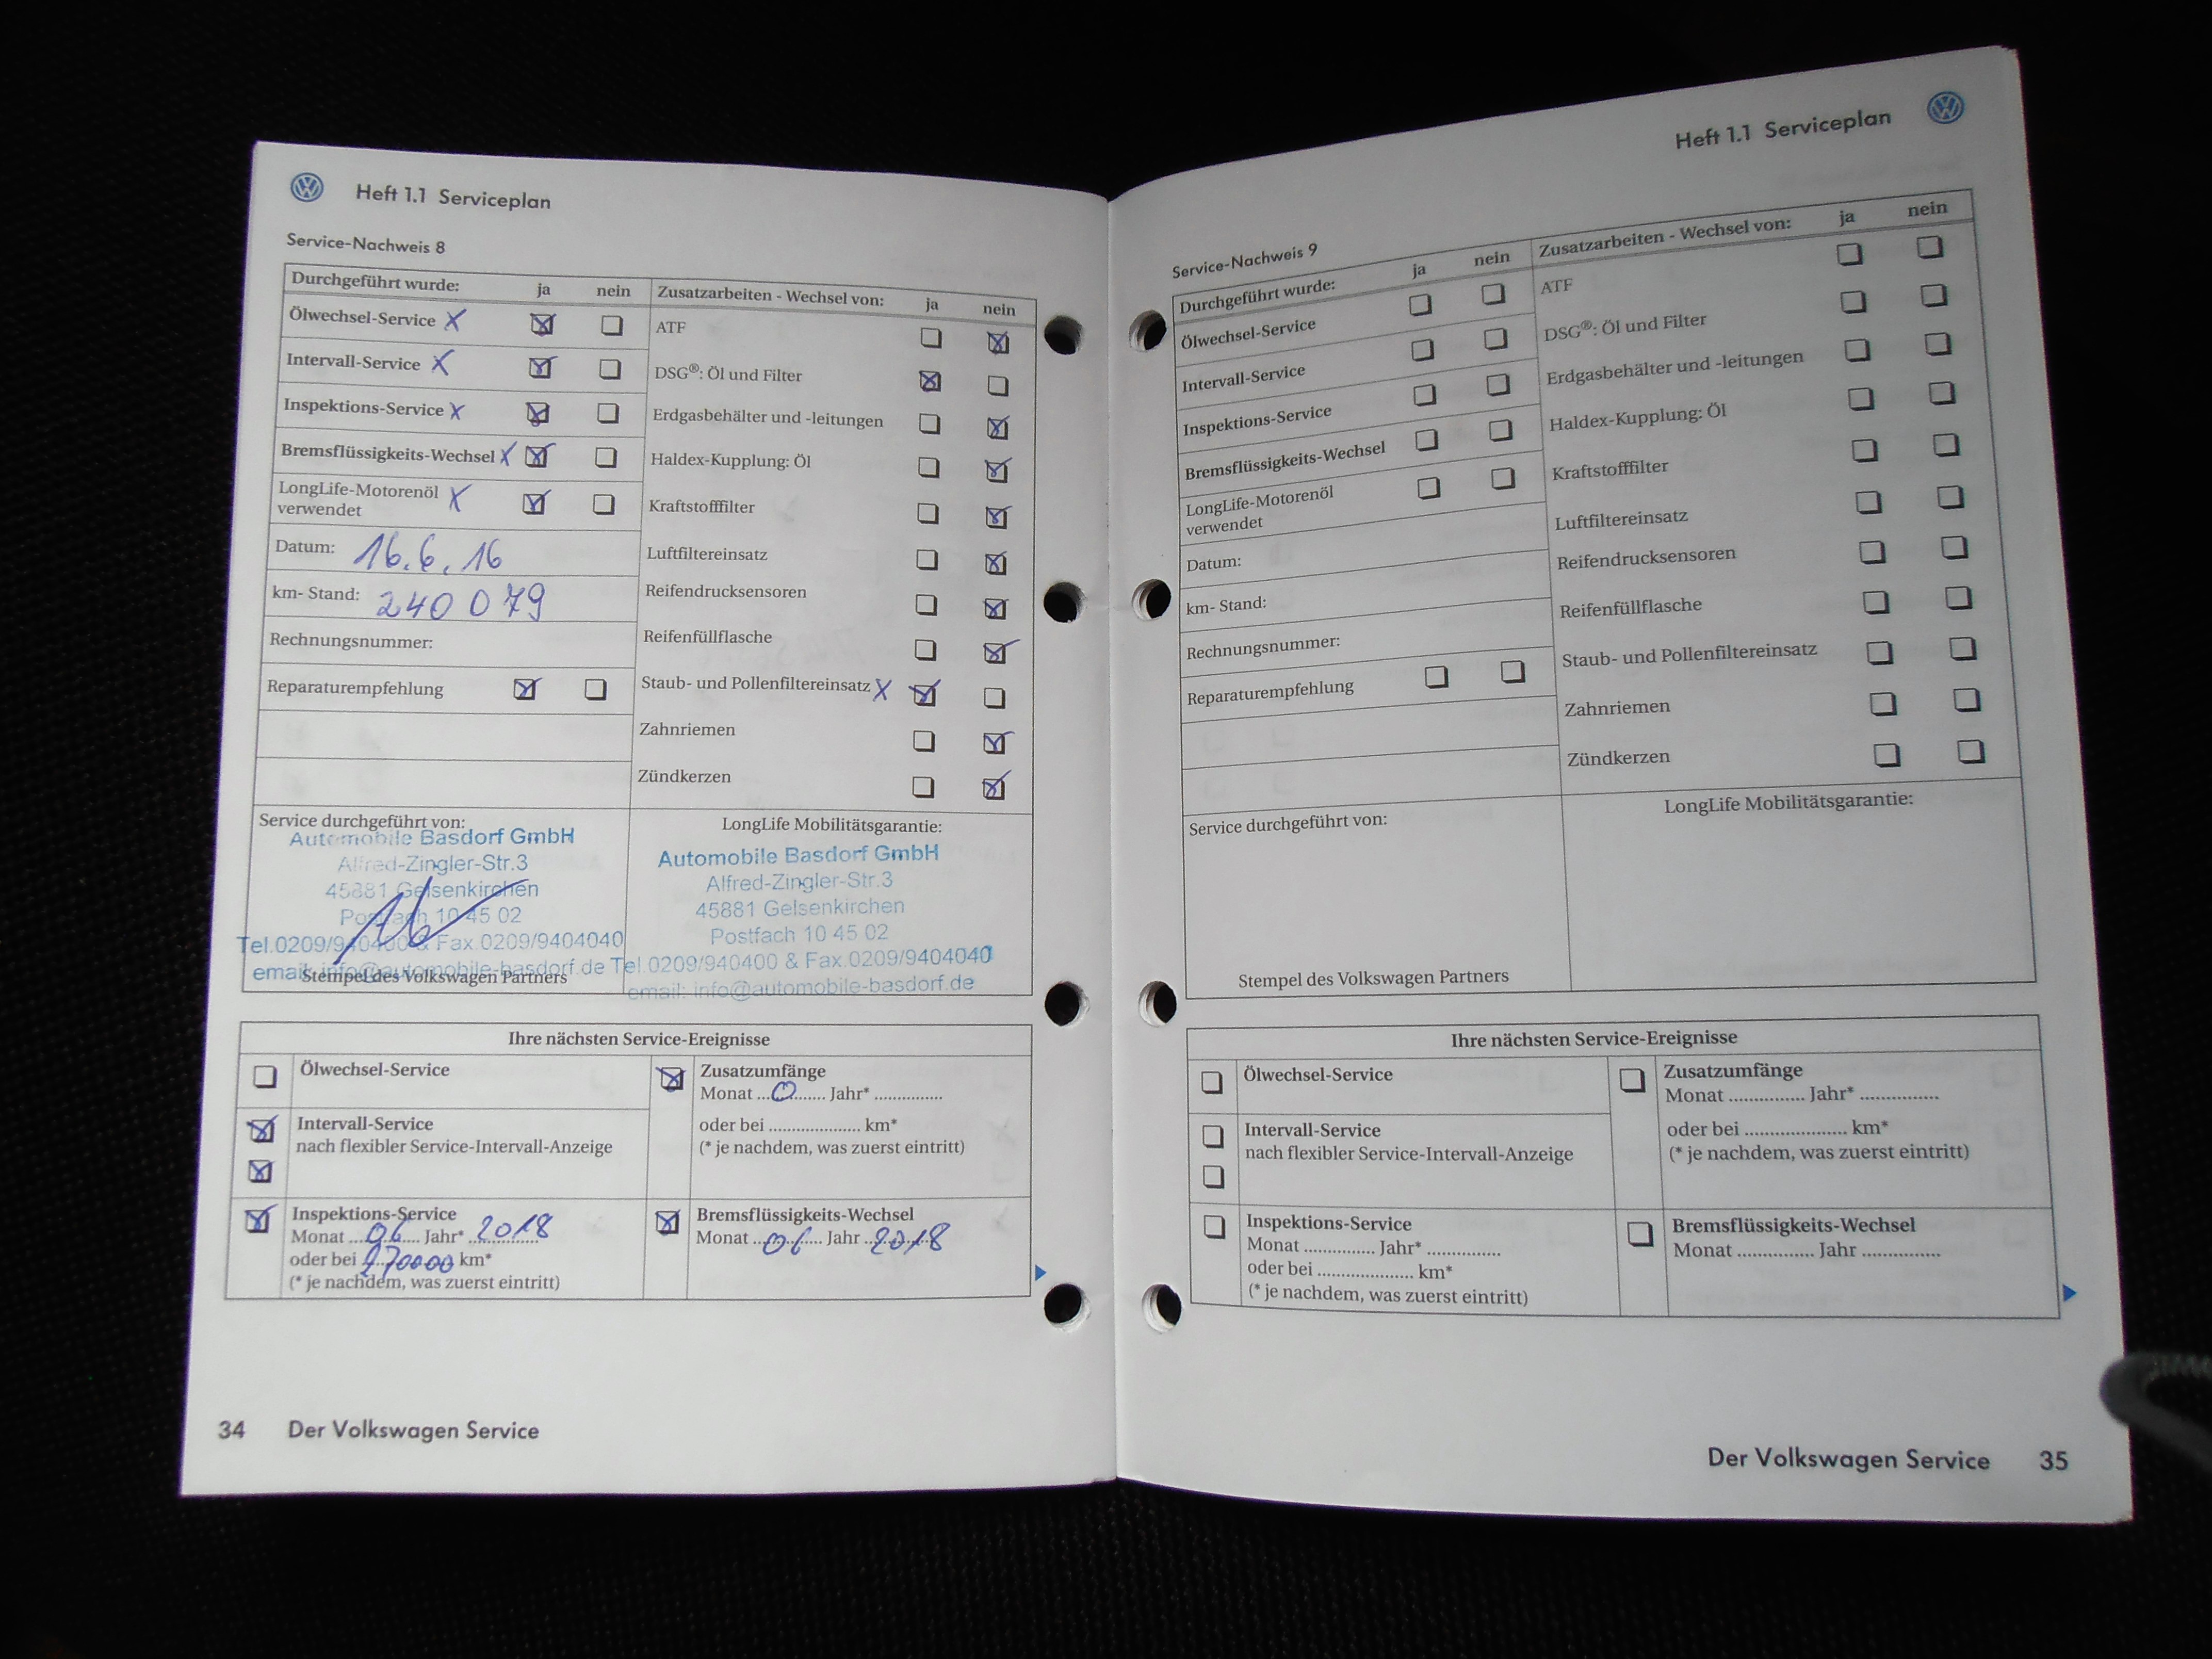 Heft 1.1 Serviceplan
Service-Nachweis 8
Durchgeführt wurde: ja nein
Ölwechsel-Service X
Intervall-Service X
Inspektions-Service X
Bremsflüssigkeits-Wechsel X
LongLife-Motorenöl X
verwendet
Datum: 16.6.16
km- Stand: 240 079
Rechnungsnummer:
Reparaturempfehlung
Zusatzarbeiten - Wechsel von: ja nein
ATF
DSG®: Öl und Filter
Erdgasbehälter und -leitungen
Haldex-Kupplung: Öl
Kraftstofffilter
Luftfiltereinsatz
Reifendrucksensoren
Reifenfüllflasche
Staub- und Pollenfiltereinsatz X
Zahnriemen
Zündkerzen
Service durchgeführt von:
Automobile Basdorf GmbH
Alfred-Zingler-Str.3
45881 Gelsenkirchen
Postfach 10 45 02
Tel.0209/940400 & Fax.0209/9404040
email: info@automobile-basdorf.de
Stempel des Volkswagen Partners
LongLife Mobilitätsgarantie:
Automobile Basdorf GmbH
Alfred-Zingler-Str.3
45881 Gelsenkirchen
Postfach 10 45 02
Tel.0209/940400 & Fax.0209/9404040
email: info@automobile-basdorf.de
Ihre nächsten Service-Ereignisse
Ölwechsel-Service
Intervall-Service
nach flexibler Service-Intervall-Anzeige
Inspektions-Service
Monat ...06... Jahr* ...2018...
oder bei ...270000 km*
(* je nachdem, was zuerst eintritt)
Zusatzumfänge
Monat ...0........ Jahr* ...............
oder bei .................... km*
(* je nachdem, was zuerst eintritt)
Bremsflüssigkeits-Wechsel
Monat ...06... Jahr ...2018...
34 Der Volkswagen Service
Heft 1.1 Serviceplan
Service-Nachweis 9
Durchgeführt wurde: ja nein
Ölwechsel-Service
Intervall-Service
Inspektions-Service
Bremsflüssigkeits-Wechsel
LongLife-Motorenöl
verwendet
Datum:
km- Stand:
Rechnungsnummer:
Reparaturempfehlung
Zusatzarbeiten - Wechsel von: ja nein
ATF
DSG®: Öl und Filter
Erdgasbehälter und -leitungen
Haldex-Kupplung: Öl
Kraftstofffilter
Luftfiltereinsatz
Reifendrucksensoren
Reifenfüllflasche
Staub- und Pollenfiltereinsatz
Zahnriemen
Zündkerzen
Service durchgeführt von:
Stempel des Volkswagen Partners
LongLife Mobilitätsgarantie:
Ihre nächsten Service-Ereignisse
Ölwechsel-Service
Intervall-Service
nach flexibler Service-Intervall-Anzeige
Inspektions-Service
Monat ............... Jahr* ...............
oder bei .................... km*
(* je nachdem, was zuerst eintritt)
Zusatzumfänge
Monat ............... Jahr* ...............
oder bei .................... km*
(* je nachdem, was zuerst eintritt)
Bremsflüssigkeits-Wechsel
Monat ............... Jahr ...............
Der Volkswagen Service 35